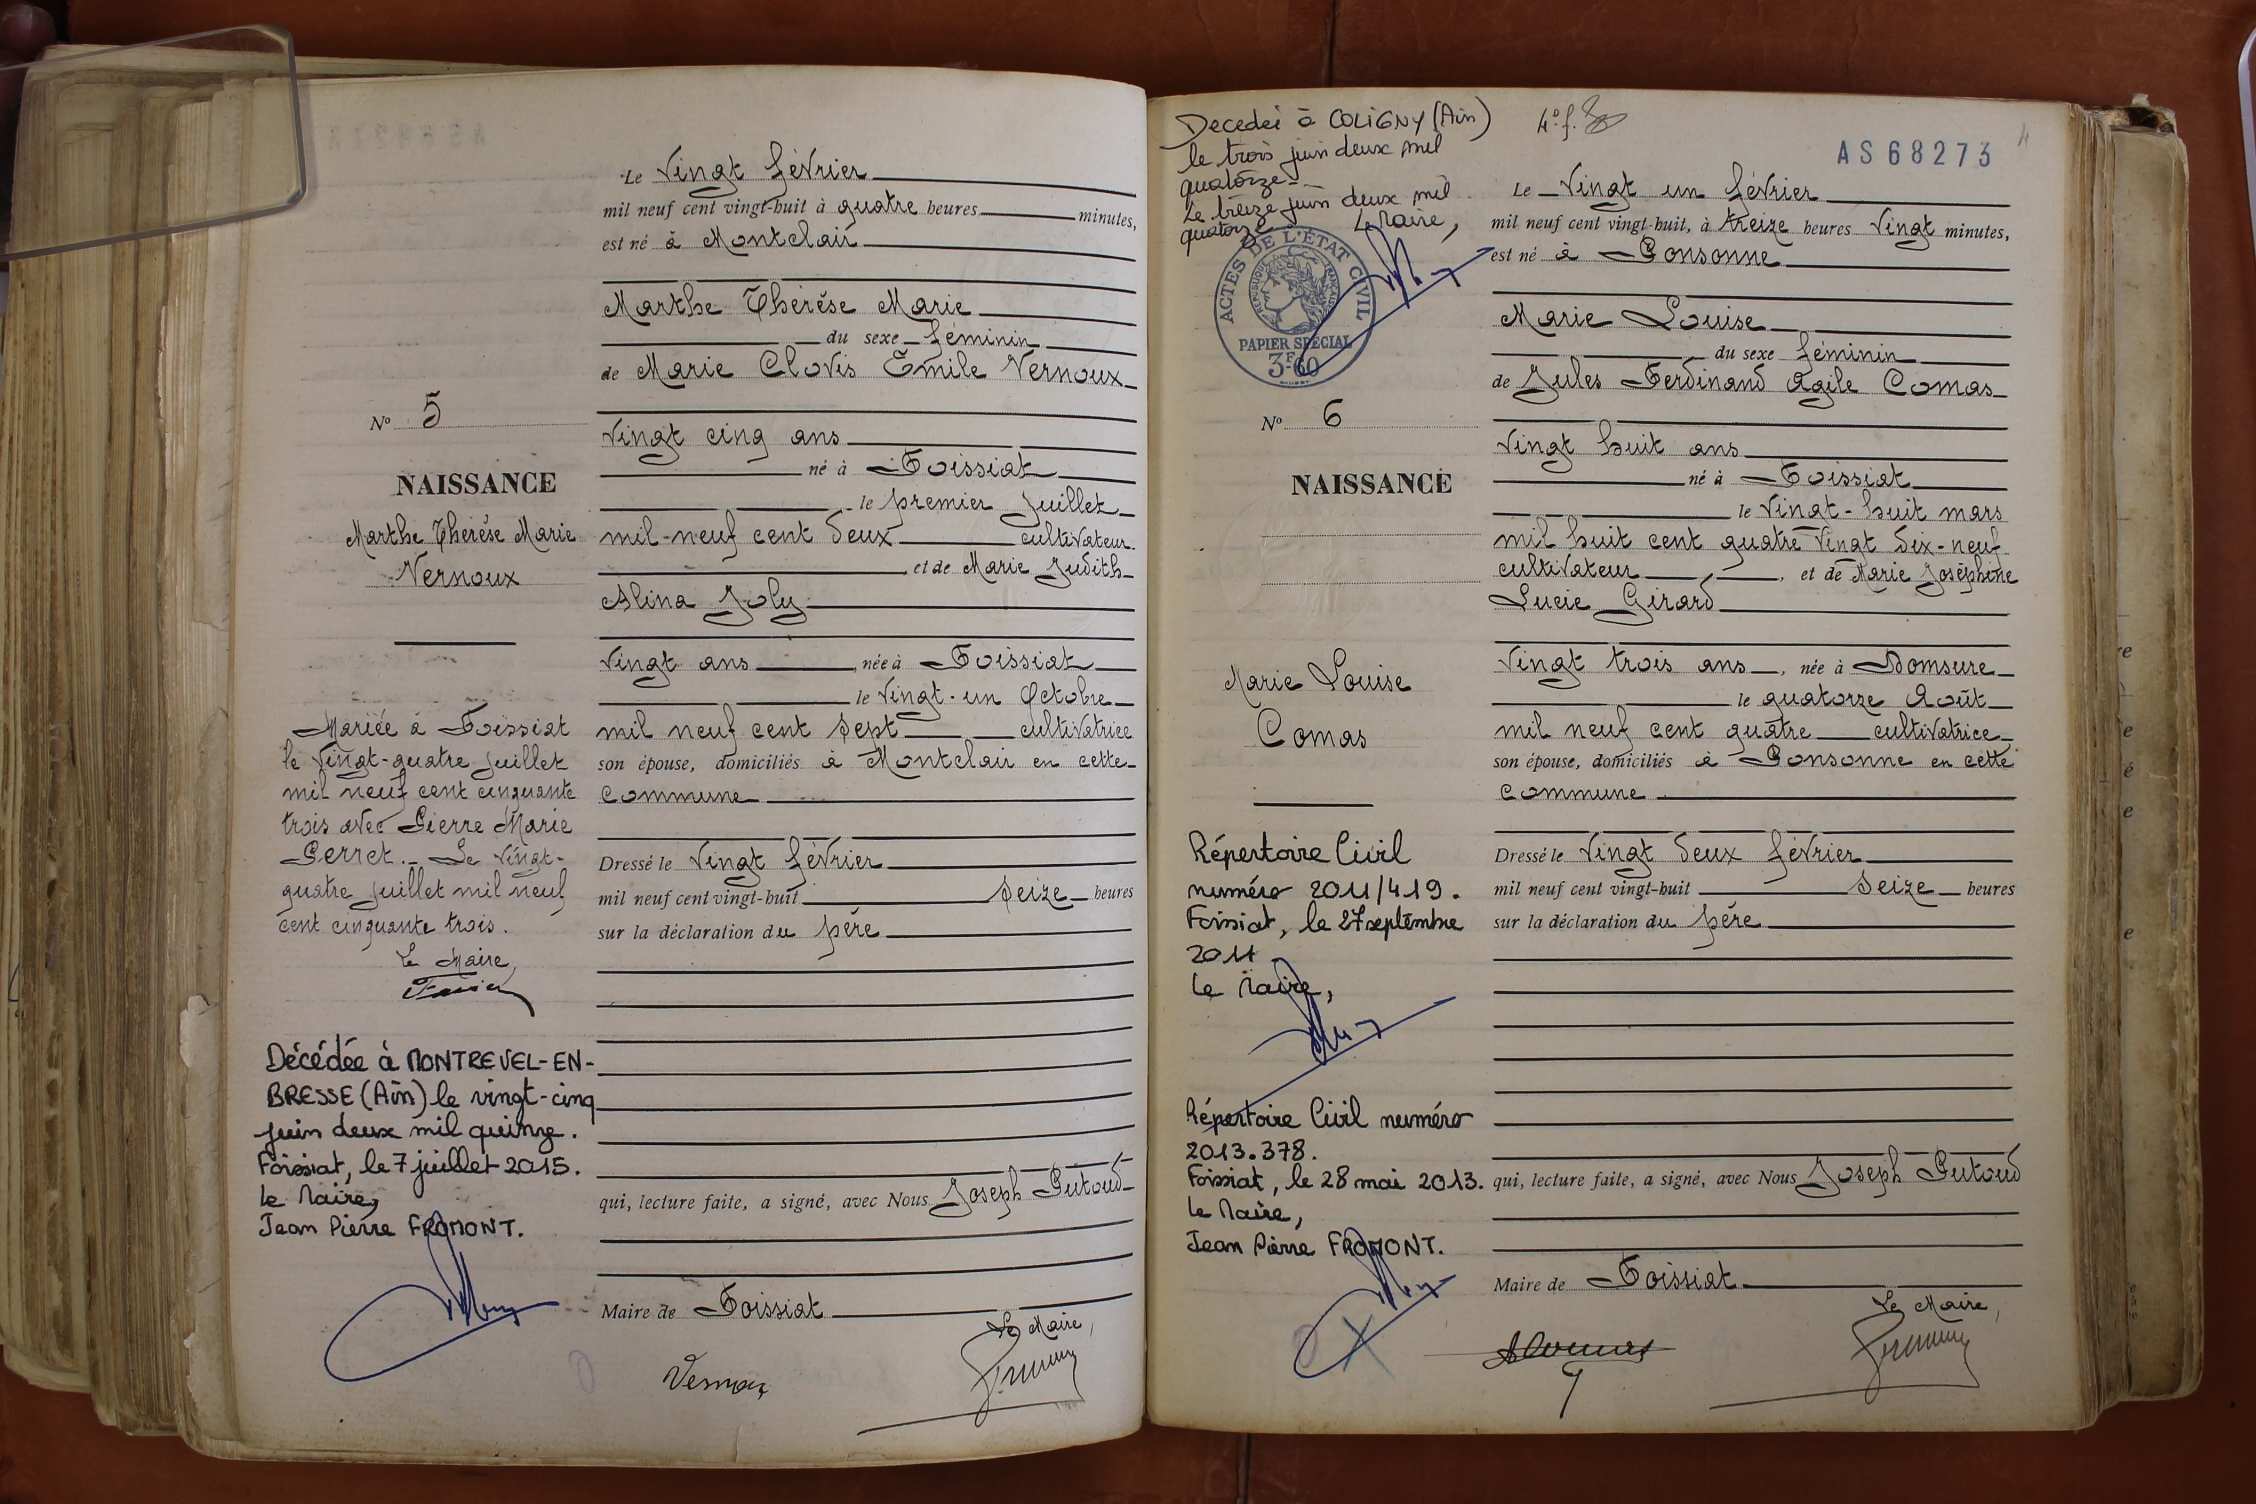 Le Vingt février
mil neuf cent vingt-huit à quatre heures minutes,
est né à Montclair
Marthe Thérèse Marie
du sexe féminin
de Marie Clovis Emile Vernoux
vingt cinq ans
né à Foissiat
le premier Juillet
mil-neuf cent deux cultivateur
et de Marie Judith
Alina Joly
Vingt ans, née à Foissiat
le Vingt-un Octobre
mil neuf cent sept cultivatrice
son épouse, domiciliés à Montclair en cette
commune
Dressé le vingt février
mil neuf cent vingt-huit seize heures
sur la déclaration du père
qui, lecture faite, a signé, avec Nous Joseph Putoud
Maire de Foissiat
Le Maire,
Vernoux
No 5
NAISSANCE
Marthe Thérèse Marie
Vernoux
Mariée à Foissiat
le Vingt-quatre Juillet
mil neuf cent cinquante
trois avec Pierre Marie
Perret.- Le Vingt-
quatre Juillet mil neuf
cent cinquante trois.
Le Maire,
Décédée à MONTREVEL-EN-
BRESSE (Ain) le vingt-cinq
juin deux mil quinze.
Foissiat, le 7 juillet 2015.
Le Maire,
Jean Pierre FROMONT.
Decedéé à COLIGNY (Ain)
le trois juin deux mil
quatorze
Le treize juin deux mil
quatorze Le Maire,
ACTES DE L'ÉTAT CIVIL
RÉPUBLIQUE FRANÇAISE
PAPIER SPÉCIAL
3F60
No 6
NAISSANCE
Marie Louise
Comas
Répertoire Civil
numéro 2011/419.
Foissiat, le 27 septembre
2011
Le Maire,
Répertoire Civil numéro
2013.378.
Foissiat, le 28 mai 2013.
Le Maire,
Jean Pierre FROMONT.
AS68273
4
Le Vingt un février
mil neuf cent vingt-huit, à treize heures Vingt minutes,
est né à Ponsonne
Marie Louise
du sexe féminin
de Jules Ferdinand Agile Comas
Vingt huit ans
né à Foissiat
le Vingt-huit mars
mil huit cent quatre Vingt dix-neuf
cultivateur, et de Marie Joséphine
Lucie Girard
Vingt trois ans, née à Domsure
le quatorze Août
mil neuf cent quatre cultivatrice
son épouse, domiciliés à Ponsonne en cette
commune
Dressé le Vingt deux février
mil neuf cent vingt-huit seize heures
sur la déclaration du père
qui, lecture faite, a signé, avec Nous Joseph Putoud
Maire de Foissiat
Le Maire,